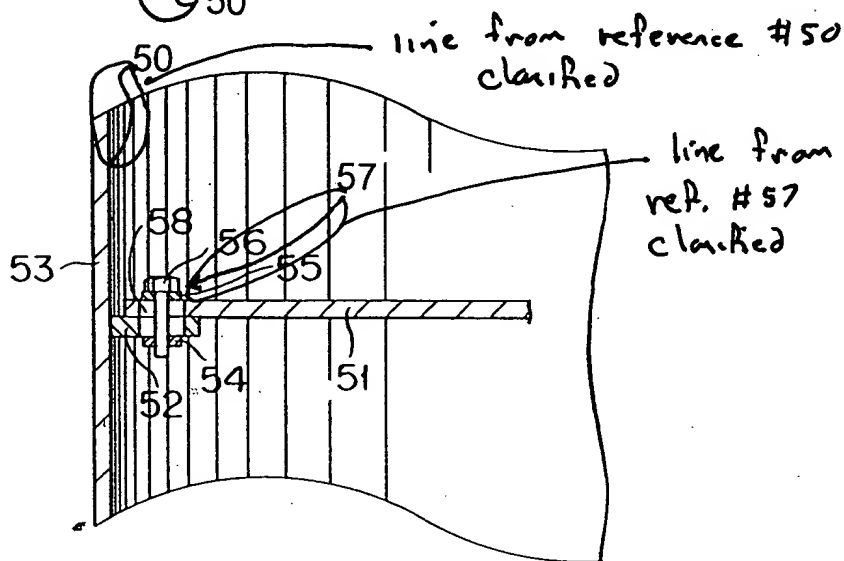 50
line from reference #50
clarified
50
line from
ref. #57
clarified
57
58
56
55
53
51
54
52